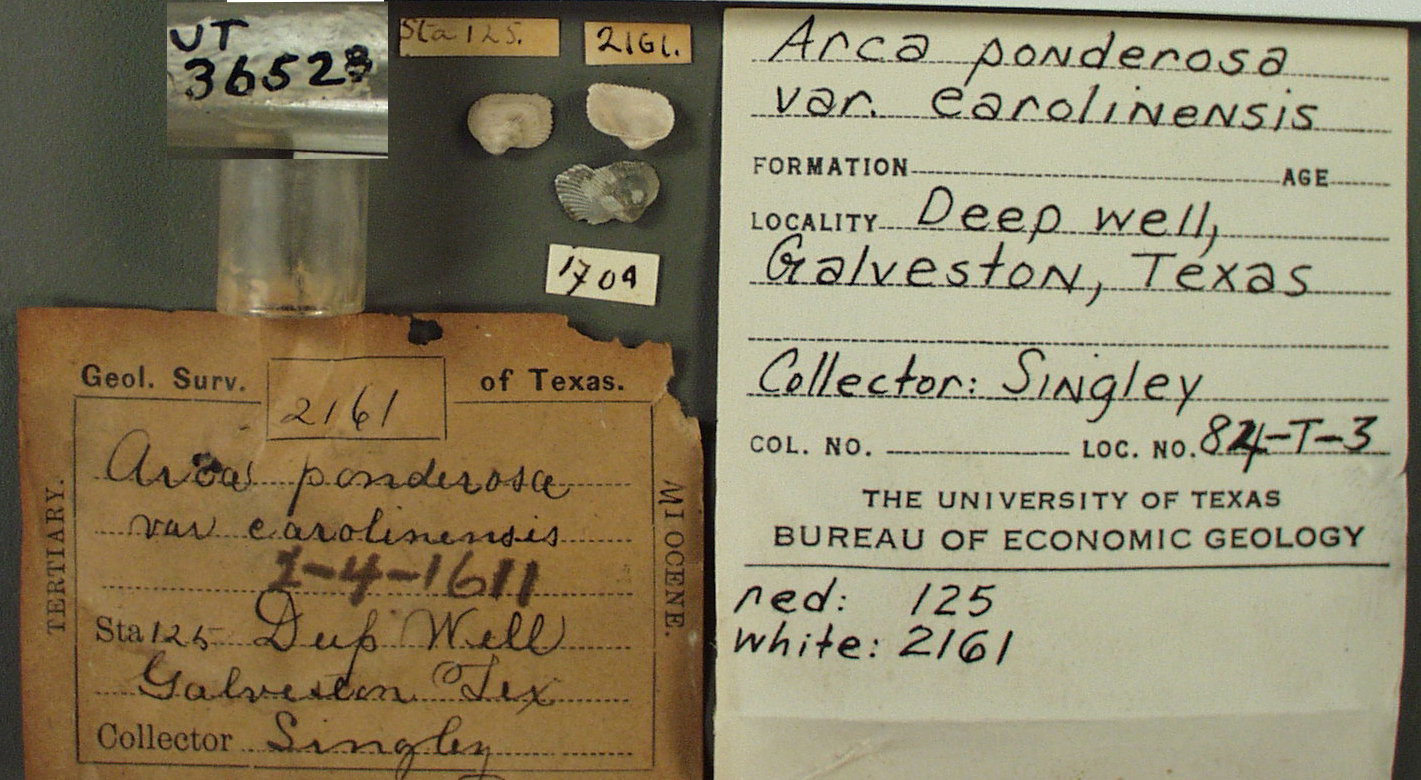 UT
36528
Sta 125.
2161.
1709
Geol. Surv. 2161 of Texas.
TERTIARY.
MIOCENE.
Arca ponderosa
var carolinensis
2-4-1611
Sta 125 Deep Well
Galveston Tex
Collector Singley
Arca ponderosa
var. carolinensis
FORMATION AGE
LOCALITY Deep well,
Galveston, Texas
Collector: Singley
COL. NO. LOC. NO. 84-T-3
THE UNIVERSITY OF TEXAS
BUREAU OF ECONOMIC GEOLOGY
red: 125
white: 2161